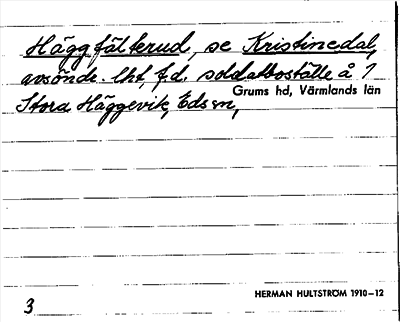 Häggfälterud, se Kristinedal,
avsöndr. lht, f.d. soldatboställe å 1
Grums hd, Värmlands län
Stora Häggevik, Eds sn,
HERMAN HULTSTRÖM 1910–12
3